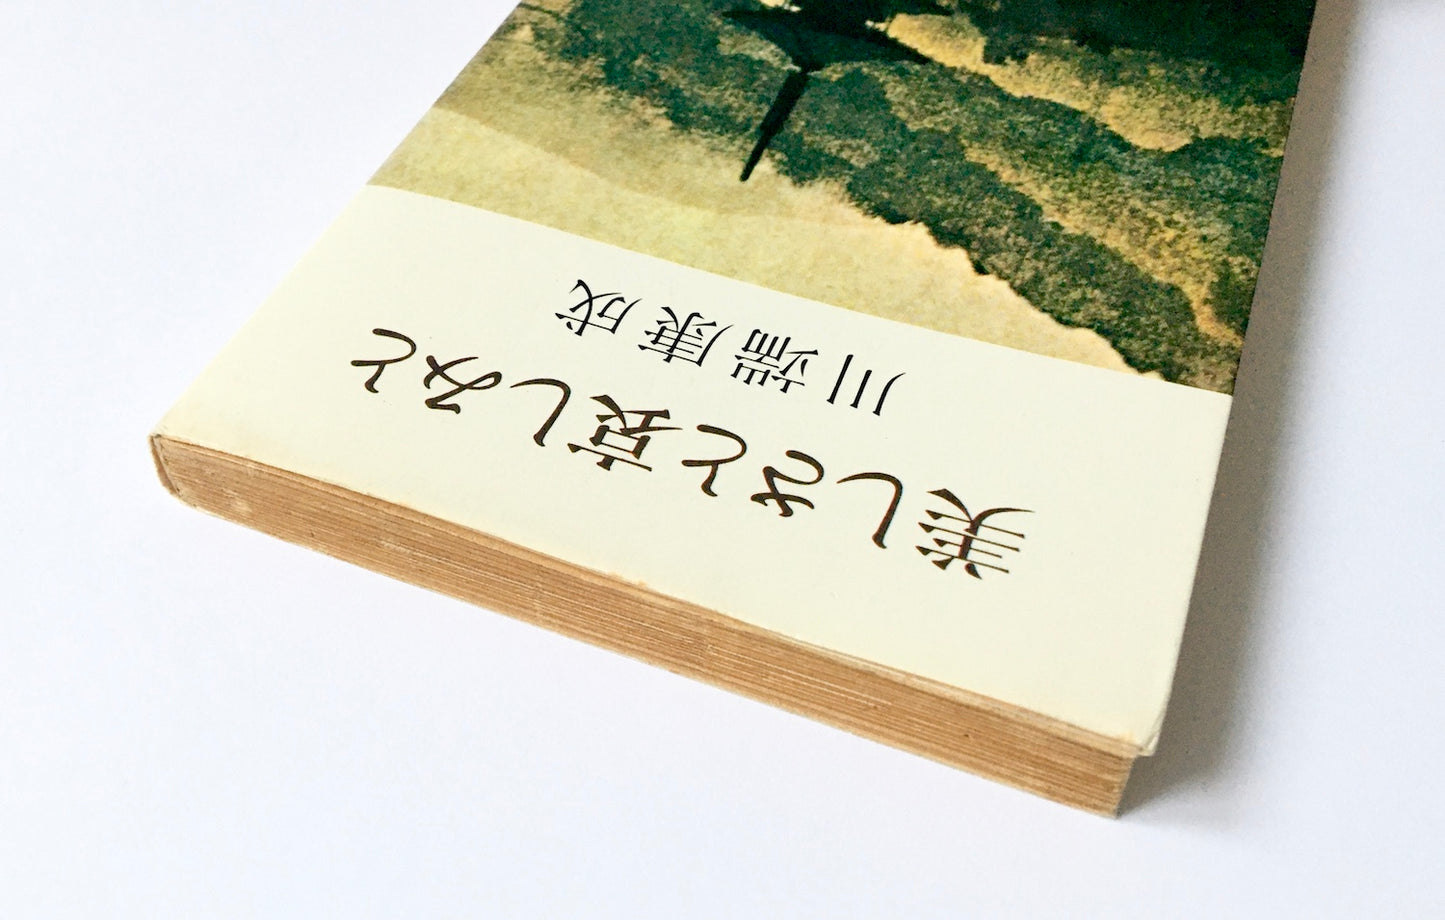 美しさと哀しみと
川端康成